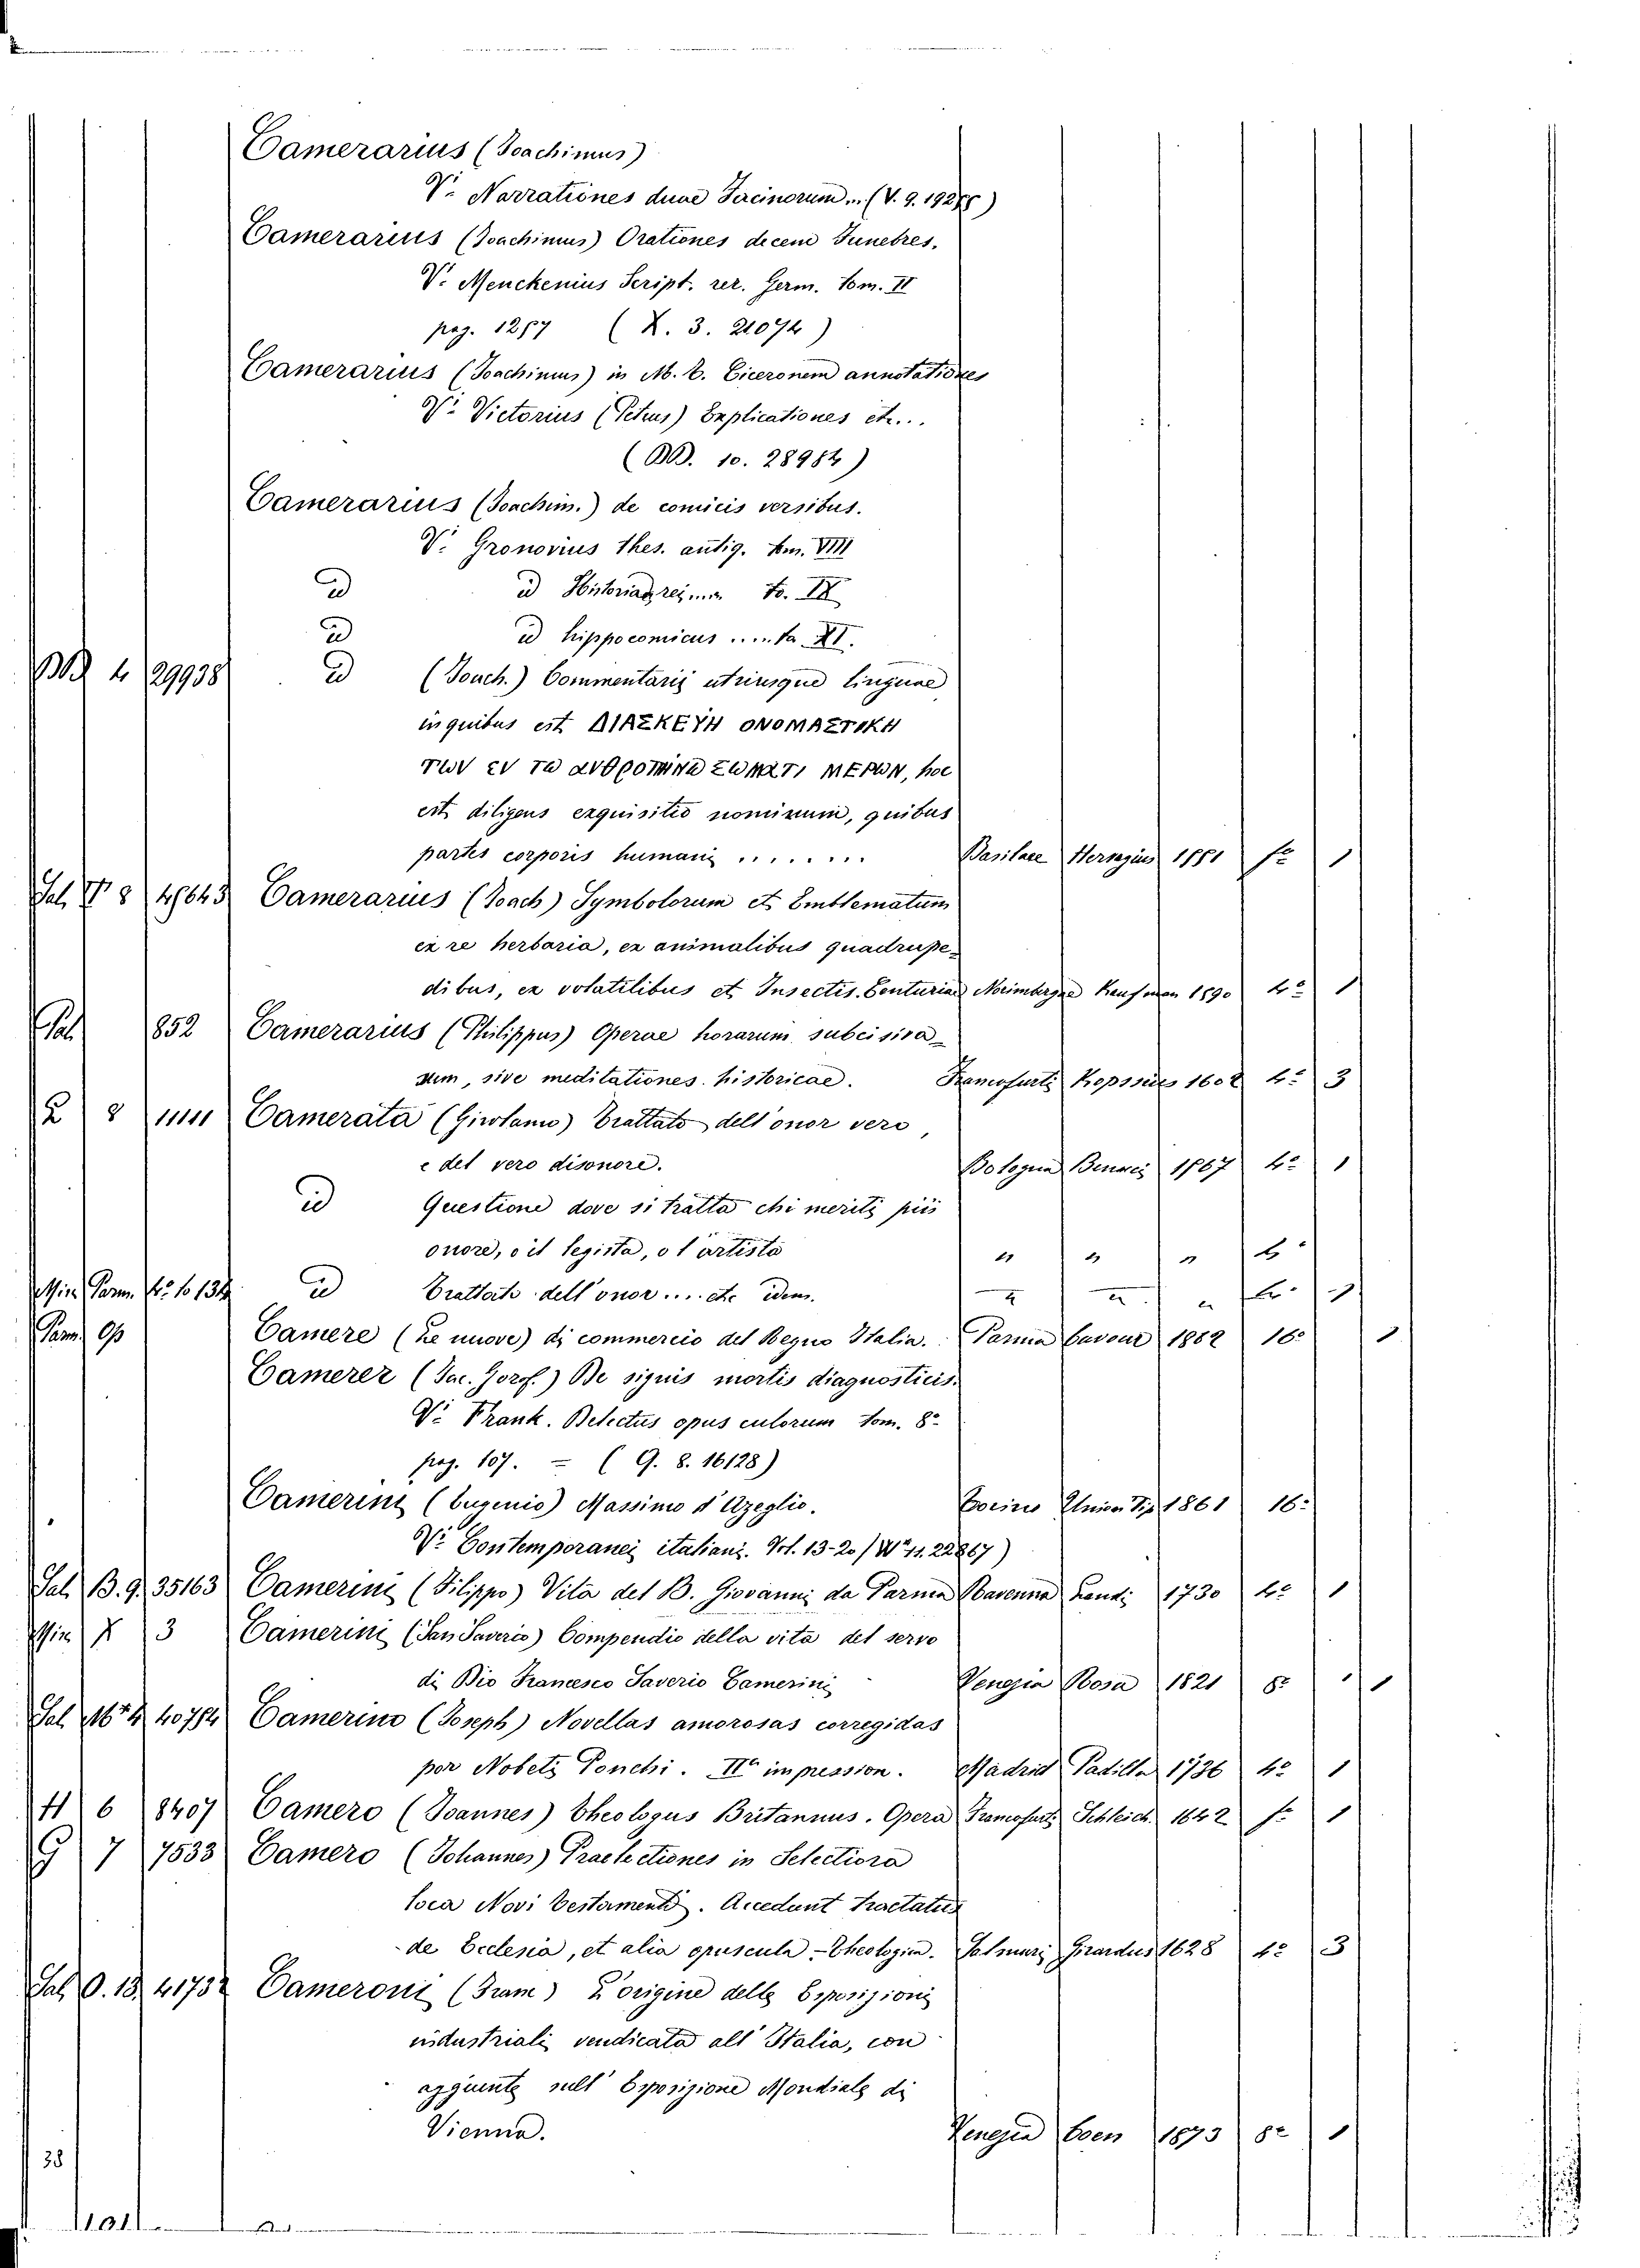 Camerarius (Joachimus)
V. Narrationes duae Facinorum... (V. 9. 19275)
Camerarius (Joachimus) Orationes decem Funebres.
V. Menckenius Script. rer. Germ. tom. II
pag. 1257 (X. 3. 21074)
Camerarius (Joachimus) in M. T. Ciceronem annotationes
V. Victorius (Petrus) Explicationes etc...
(BB. 10. 28984)
Camerarius (Joachim.) de comicis versibus.
V. Gronovius thes. antiq. tom. VIII
id id Historia rei ... to. IX
id id hippocomicus .... to. XI.
BB 4 29938 id (Joach.) Commentarii utriusque linguae
in quibus est ΔΙΑΣΚΕΥΗ ΟΝΟΜΑΣΤΙΚΗ
των εν τω ανθρωπινω σωματι ΜΕΡΩΝ, hoc
est diligens exquisitio nominum, quibus
partes corporis humani ........ Basileae Hervagius 1551 fo 1
Sal. V 8 45643 Camerarius (Joach) Symbolorum et Emblematum
ex re herbaria, ex animalibus quadrupe-
dibus, ex volatilibus et Insectis. Centuriae Norimbergae Kaufman 1590 4º 1
Pal 852 Camerarius (Philippus) Operae horarum subcisiva-
rum, sive meditationes historicae. Francofurti Kopssius 1602 4º 3
8 11111 Camerata (Girolamo) Trattato dell'onor vero,
e del vero disonore. Bologna Benacci 1567 4º 1
id Questione dove si tratta chi meriti più
onore, o il legista, o l'artista " " " 4º
Min Parm. 4º. to 134 id Trattato dell'onor .... etc idem. " " " 4º 1
Parm. Op Camere (Le nuove) di commercio del Regno Italia. Parma Cavour 1862 16º 1
Camerer (Jac. Gorof.) De signis mortis diagnosticis.
V. Frank. Delectus opus culorum tom. 8º
pag. 107. = (G. 8. 16128)
Camerini (Eugenio) Massimo d'Azeglio. Torino Union Tip 1861 16º
V. Contemporanei italiani. Vol. 13-20 / Wº 11. 22867)
Sal. B. 9. 35163 Camerini (Filippo) Vita del B. Giovanni da Parma Ravenna Landi 1730 4º 1
Min X 3 Camerini (San Saverio) Compendio della vita del servo
di Dio Francesco Saverio Camerini Venezia Rosa 1821 8º 1 1
Sal 40784 Camerino (Joseph) Novellas amorosas corregidas
por Nobeli Ponchi. IIª impression. Madrid Padilla 1736 4º 1
H 6 8407 Camero (Joannes) Theologus Britannus. Opera Francofurti Schleich. 1642 fo 1
G 7 7533 Camero (Johannes) Praelectiones in Selectiora
loca Novi Testamenti. Accedunt tractatus
de Ecclesia, et alia opuscula Theologia. Salmuri Girardus 1628 4º 3
Sal O. 13. 41732 Cameroni (Franc) L'origine delle Esposizioni
industriali vendicata all'Italia, con
aggiunte sull'Esposizione Mondiale di
Vienna. Venezia Coen 1873 8º 1
38
1101